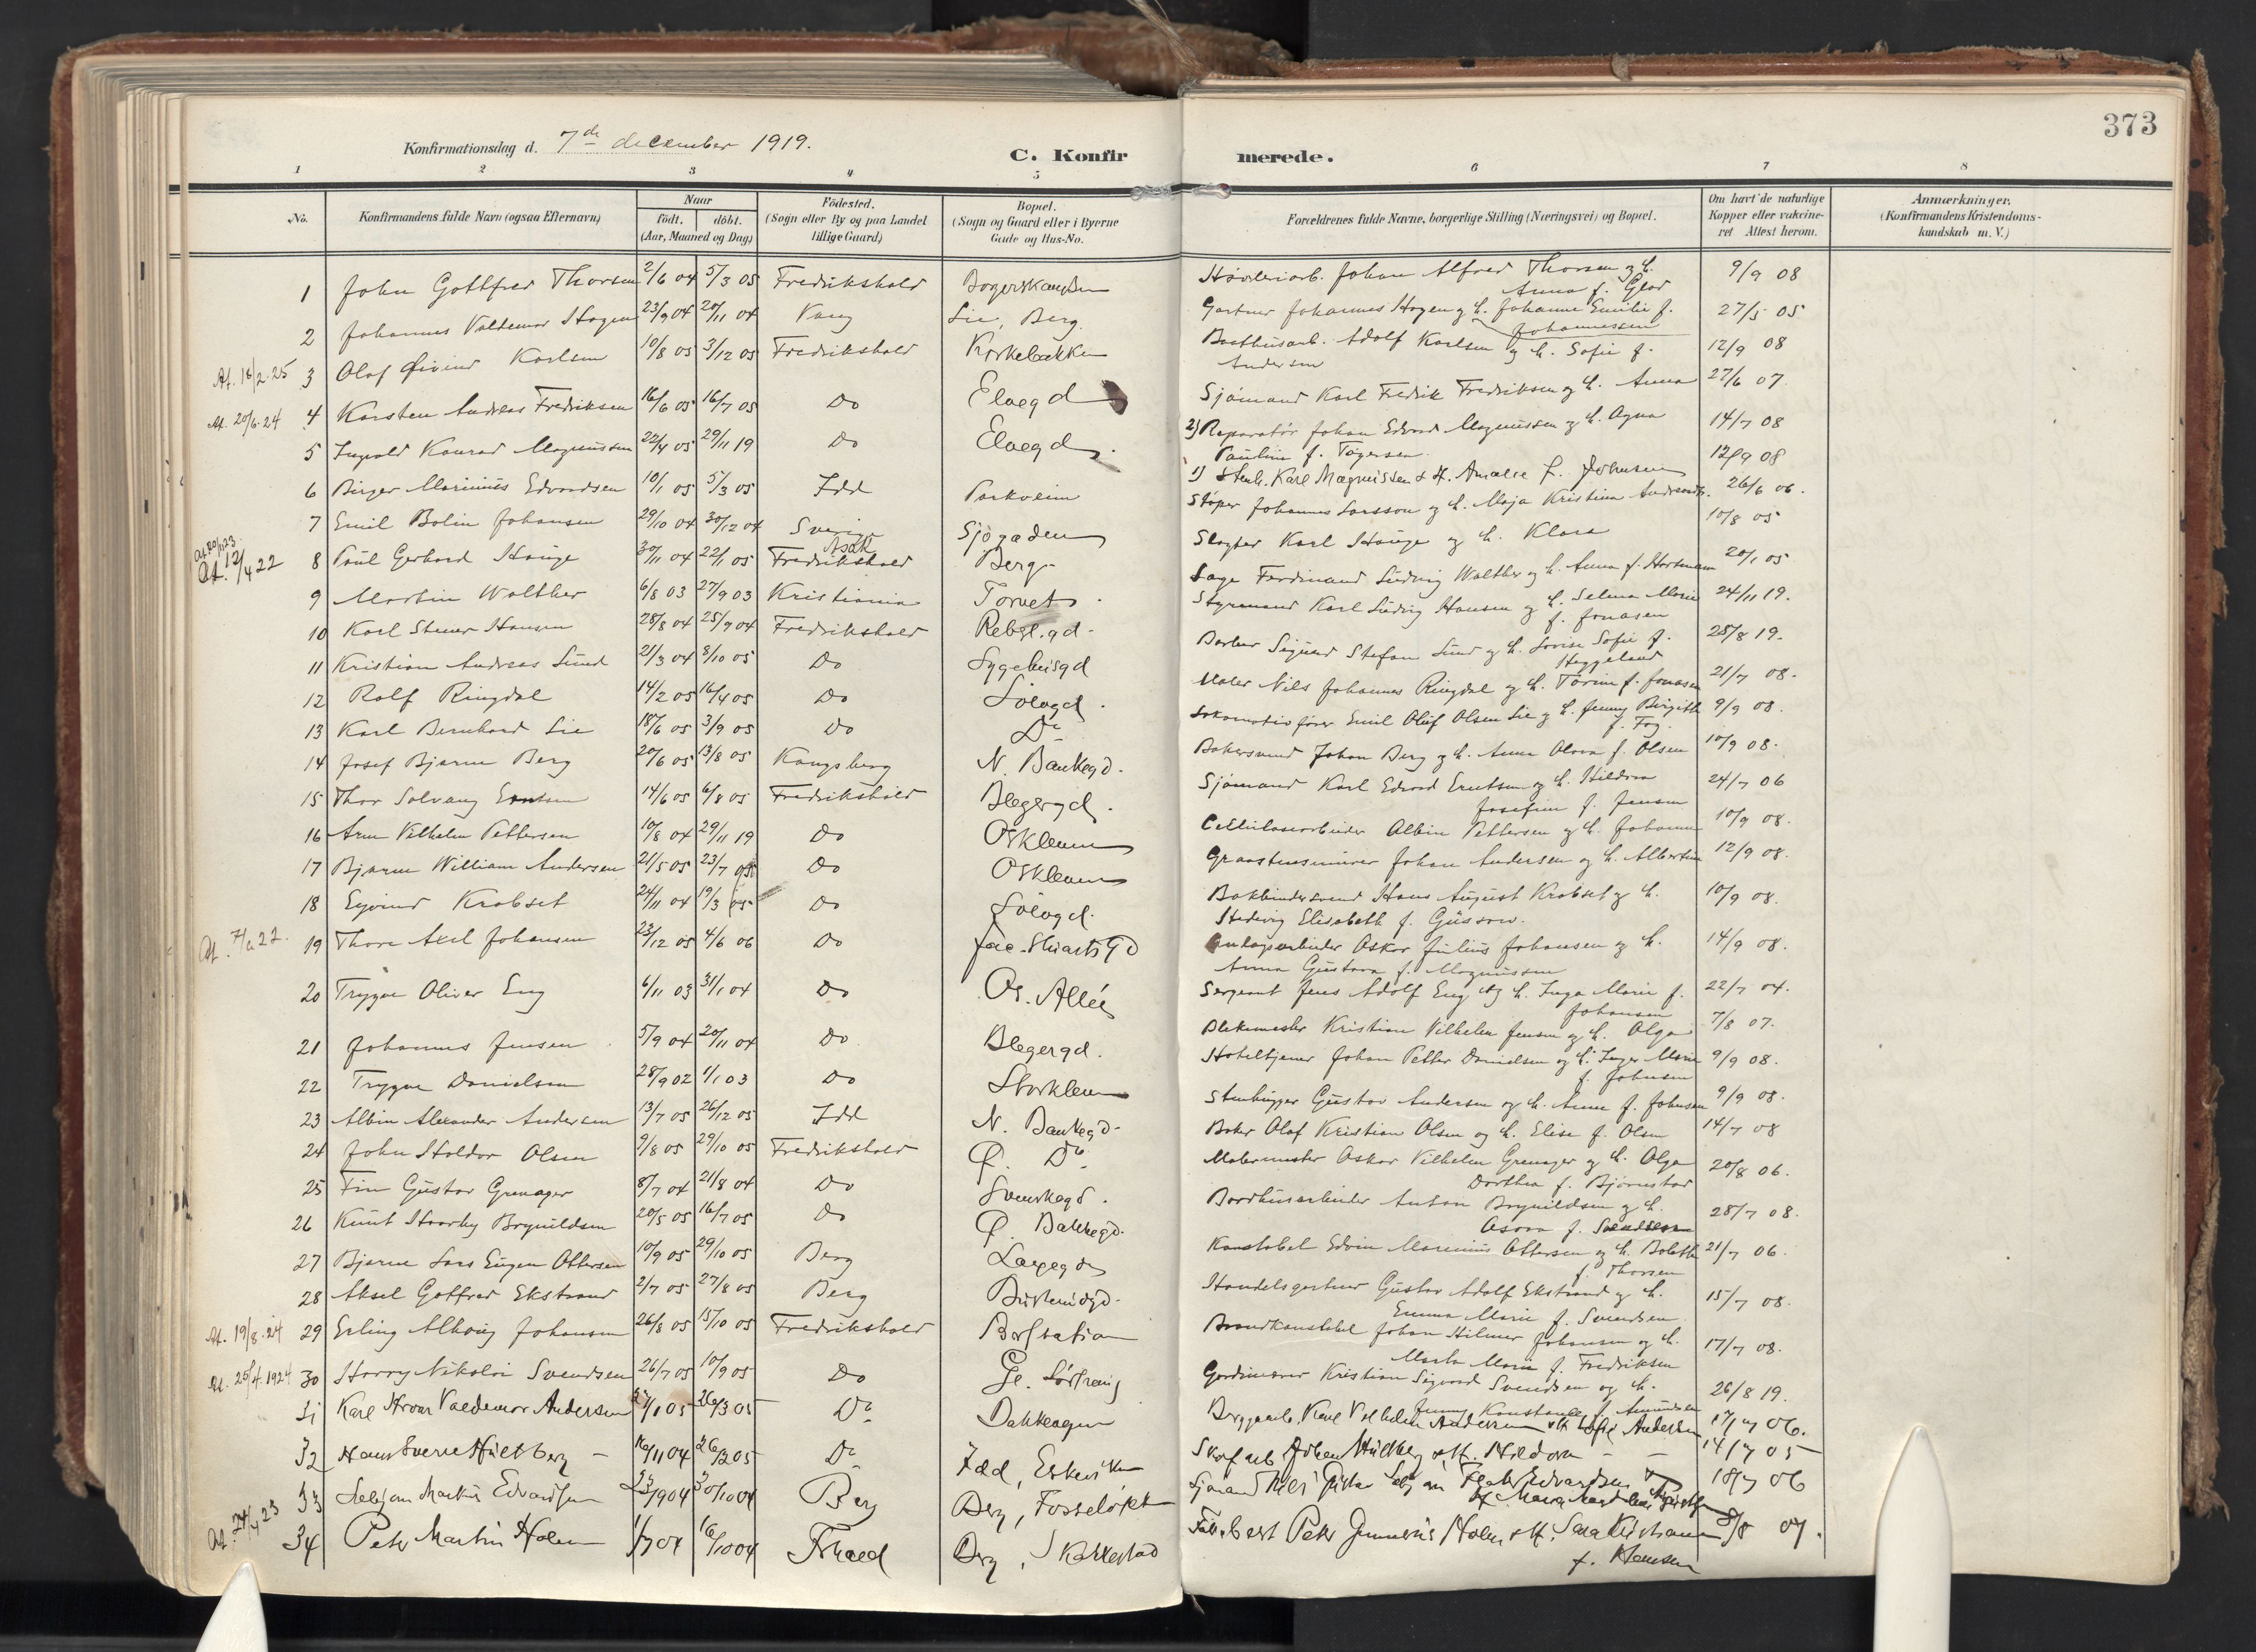 373
Konfirmationsdag d. 7de december 1919.
C. Konfirmerede.
1 2 3 4 5 6 7 8
No.
Konfirmandens fulde Navn (ogsaa Efternavn)
Naar
født. døbt.
(Aar, Maaned og Dag)
Fødested.
(Sogn eller By og paa Landet
tillige Gaard)
Bopæl.
(Sogn og Gaard eller i Byerne
Gade og Hus-No.
Forældrenes fulde Navne, borgerlige Stilling (Næringsvei) og Bopæl.
Om havt de naturlige
Kopper eller vakcine-
ret Attest herom.
Anmærkninger.
(Konfirmandens Kristendoms-
kundskab m. V.)
1 John Gottfred Thorsen 2/6 04 5/3 05 Fredrikshald Høvleriarb. Johan Alfred Thorsen og h. Anna f. Glad 9/9 08
2 Johannes Valdemar Hagen 23/9 04 20/11 04 Vang Lie, Berg. Gartner Johannes Hagen og h. Johanne Emilie f. Johannessen 27/5 05
At. 16/2.25 3 Olaf Øivind Karlsen 10/8 05 3/12 05 Fredrikshald Kirkebakken Adolf Karlsen og h. Sofie f. Andersen 12/9 08
At. 20/6.24 4 Karsten Andreas Fredriksen 16/6 05 16/7 05 Do Elvegd Sjømand Karl Fredrik Fredriksen og h. Anna 27/6 07.
5 Ingvald Konrad Magnussen 22/4 05 29/11 19 Do Elvegd. 2) Reparatør Johan Edvard Magnussen og h. Agna Pauline f. Tøgersen 14/7 08
6 Birger Marinius Edvardsen 10/1 05 5/3 05 Idd Parkveien 1) Stenh. Karl Magnussen & H. Amalie f. Johnsen 12/9 08
7 Emil Bolin Johansen 29/10 04 30/12 04 Sverige Sjøgaden Støper Johannes Larsson og h. Maja Kristina 26/6 06.
At. 12/4 22 8 Paul Gerhard Hauge 30/11 04 22/1 05 Asak Fredrikshald Berg Slagter Karl Hauge og h. Klara 10/8 05
9 Martin Walther 6/8 03 27/9 03 Kristiania Torvet Ferdinand Ludvig Walther og h. Anna f. Hartmann 20/1 05
10 Karl Stener Hansen 28/8 04 25/9 04 Fredrikshald Rebsl.gd. Styrmand Karl Ludvig Hansen og h. Selma Marie f. Jonasen 24/11 19.
11 Kristian Andreas Lund 21/3 04 8/10 05 Do Sygehusgd Barber Sigurd Stefan Lund og h. Lovise Sofie f. Heggeland 25/8 19.
12 Rolf Ringdal 14/2 05 16/4 05 Do Maler Nils Johannes Ringdal og h. Torine f. Jonasen 21/7 08.
13 Karl Bernhard Lie 18/6 05 3/9 05 Do Do Lokomotivfører Emil Oluf Olsen Lie og h. Jenny Birgitte f. Fog. 9/9 08.
14 Josef Bjarne Berg 20/6 05 13/8 05 Kongsberg N. Bankegd. Bakersvend Johan Berg og h. Anna Olava f. Olsen 10/9 08.
15 Thor Solvang Erntsen 14/6 05 6/8 05 Fredrikshald Blegergd. Sjømand Karl Edvard Erntsen og h. Hildra Josefine f. Jensen 24/7 06
16 Arne Vilhelm Pettersen 10/8 04 29/11 19 Do Oskleven Cellulosearbeider Albin Pettersen og h. Johanne 10/9 08.
17 Bjarne William Andersen 21/5 05 23/7 05 Do Oskleven Graastensmurer Johan Andersen og h. Albertine 12/9 08.
18 Eyvind Krabset 24/11 04 19/3 05 Do Bokbindersvend Hans August Krabset og h. Hedevig Elisabeth f. Güssow. 10/9 08.
At. 7/4 22. 19 Thore Axel Johansen 23/12 05 4/6 06 Do Jac. Stuarts Gd Anlagsarbeider Oskar Julius Johansen og h. Anna Gustava f. Magnussen 14/9 08.
20 Trygve Oliver Eng 6/11 03 31/1 04 Do Os. Allé Sergeant Jens Adolf Eng og h. Inga Marie f. Johansen 22/7 04.
21 Johannes Jensen 5/9 04 20/11 04 Do Blegergd. Blikemester Kristian Vilhelm Jensen og h. Olga 7/8 07.
22 Trygve Danielsen 28/9 02 1/1 03 Do Storkleven Hoteltjener Johan Petter Danielsen og h. Inger Marie f. Johnsen 9/9 08.
23 Albin Alexander Andersen 13/7 05 26/12 05 Idd N. Bankegd. Stenhugger Gustav Andersen og h. Anna f. Johnsen 9/9 08.
24 John Haldor Olsen 9/8 05 29/10 05 Fredrikshald Ø. Do Baker Olaf Kristian Olsen og h. Elise f. Olsen 14/7 08
25 Fin Gustav Grenager 8/7 04 21/8 04 Do Svenskegd. Malermester Oskar Vilhelm Grenager og h. Olga Dorthea f. Bjørnstad 20/8 06.
26 Knut Haarby Brynildsen 20/5 05 16/7 05 Do Ø. Bakkegd. Bordhusarbeider Anton Brynildsen og h. Asora f. Svendsen 28/7 08.
27 Bjarne Lars Eugen Ottersen 10/9 05 29/10 05 Berg Konstabel Edvin Marinius Ottersen og h. Bolette f. Thorsen 21/7 06.
28 Aksel Gotfred Ekstrand 2/7 05 27/8 05 Berg Handelsgartner Gustav Adolf Ekstrand og h. Emma Marie f. Svendsen 15/7 08.
At. 19/8.24 29 Erling Alkvig Johansen 26/8 05 15/10 05 Fredrikshald Brandkonstabel Johan Hilmer Johansen og h. Marta Marie f. Fredriksen 17/7 08.
At. 25/4.1924 30 Harry Nikolai Svendsen 26/7 05 10/9 05 Do Gardimører Kristian Sigvard Svendsen og h. Jenny Konstanse f. Amundsen 26/8 19.
31 Karl Hroar Valdemar Andersen 27/1 05 26/3 05 Do Bakkeveien Bryggearb. Karl Vilhelm Andersen & H. Sofie Andersen 17/7 06.
32 Hans Sverre Hultberg 16/11 04 26/2 05 Do Idd, Eskeviken Skofarb. Johan Hultberg & H. Hildora 14/7 05
33 Markus Edvardsen 23/9 04 30/10 04 Berg Berg, Fosseløkk Edvardsen 18/7 06
At. 24/4 23 34 Peter Martin Holm 1/7 04 16/10 04 Frhald Berg, Kakkestad Peter Gunnerius Holm & H. Sara Kristiane f. Hansen 8/8 07.